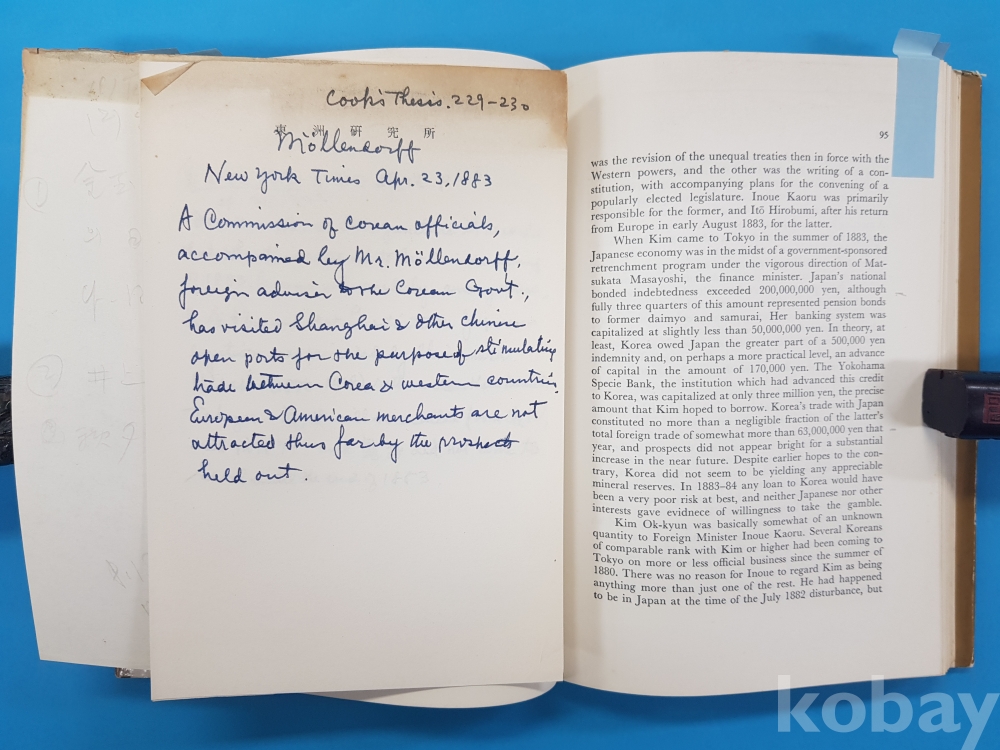 Cook's Thesis. 229-230
東洲研究所
Möllendorff
New York Times Apr. 23, 1883
A Commission of corean officials,
accompanied by Mr. Möllendorff,
foreign adviser to the Corean Govt.,
has visited Shanghai & other Chinese
open ports for the purpose of stimulating
trade between Corea & western countries
European & American merchants are not
attracted thus far by the prospects
held out.
95
was the revision of the unequal treaties then in force with the
Western powers, and the other was the writing of a con-
stitution, with accompanying plans for the convening of a
popularly elected legislature. Inoue Kaoru was primarily
responsible for the former, and Itō Hirobumi, after his return
from Europe in early August 1883, for the latter.
When Kim came to Tokyo in the summer of 1883, the
Japanese economy was in the midst of a government-sponsored
retrenchment program under the vigorous direction of Mat-
sukata Masayoshi, the finance minister. Japan's national
bonded indebtedness exceeded 200,000,000 yen, although
fully three quarters of this amount represented pension bonds
to former daimyo and samurai, Her banking system was
capitalized at slightly less than 50,000,000 yen. In theory, at
least, Korea owed Japan the greater part of a 500,000 yen
indemnity and, on perhaps a more practical level, an advance
of capital in the amount of 170,000 yen. The Yokohama
Specie Bank, the institution which had advanced this credit
to Korea, was capitalized at only three million yen, the precise
amount that Kim hoped to borrow. Korea's trade with Japan
constituted no more than a negligible fraction of the latter's
total foreign trade of somewhat more than 63,000,000 yen that
year, and prospects did not appear bright for a substantial
increase in the near future. Despite earlier hopes to the con-
trary, Korea did not seem to be yielding any appreciable
mineral reserves. In 1883-84 any loan to Korea would have
been a very poor risk at best, and neither Japanese nor other
interests gave evidnece of willingness to take the gamble.
Kim Ok-kyun was basically somewhat of an unknown
quantity to Foreign Minister Inoue Kaoru. Several Koreans
of comparable rank with Kim or higher had been coming to
Tokyo on more or less official business since the summer of
1880. There was no reason for Inoue to regard Kim as being
anything more than just one of the rest. He had happened
to be in Japan at the time of the July 1882 disturbance, but
kobay